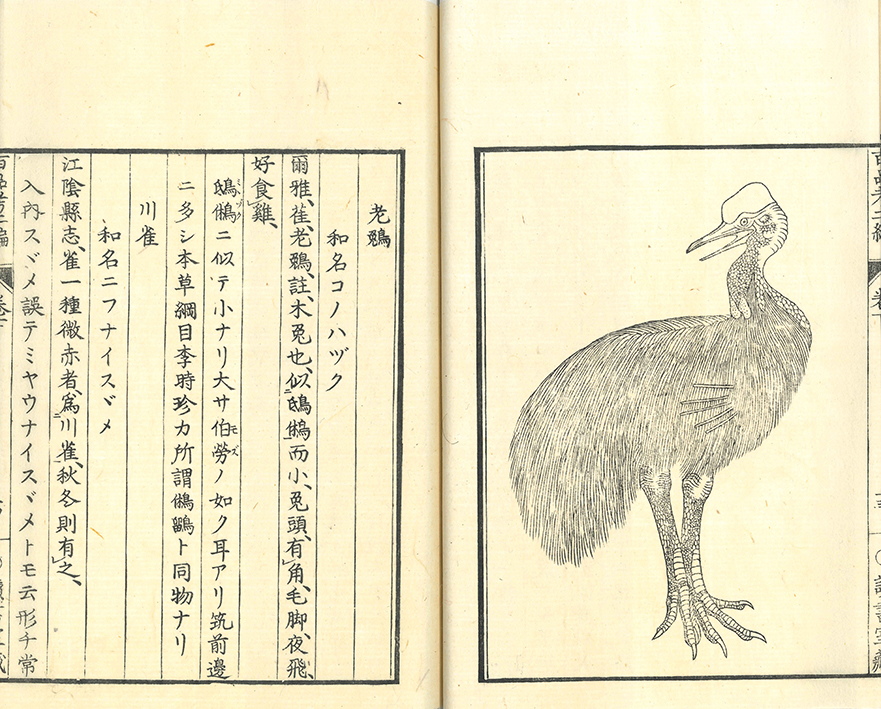 老鵵
和名コノハヅク
爾雅、萑、老鵵、註、木兎也、似鴟鵂而小、兎頭、有角、毛脚、夜飛、
好食雞、
鴟鵂ニ似テ小ナリ大サ伯勞ノ如ク耳アリ筑前邊
ニ多シ本草綱目李時珍カ所謂鵂鶹ト同物ナリ
川雀
和名ニフナイスヾメ
江陰縣志、雀一種微赤者、爲川雀、秋冬則有之、
入内スヾメ誤テミヤウナイスヾメトモ云形チ常